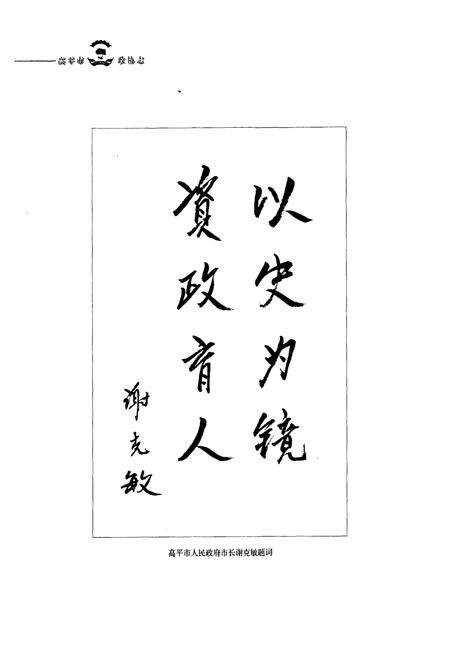 高平市 政协志
以史为镜
資政育人
谢克敏
高平市人民政府市长谢克敏题词